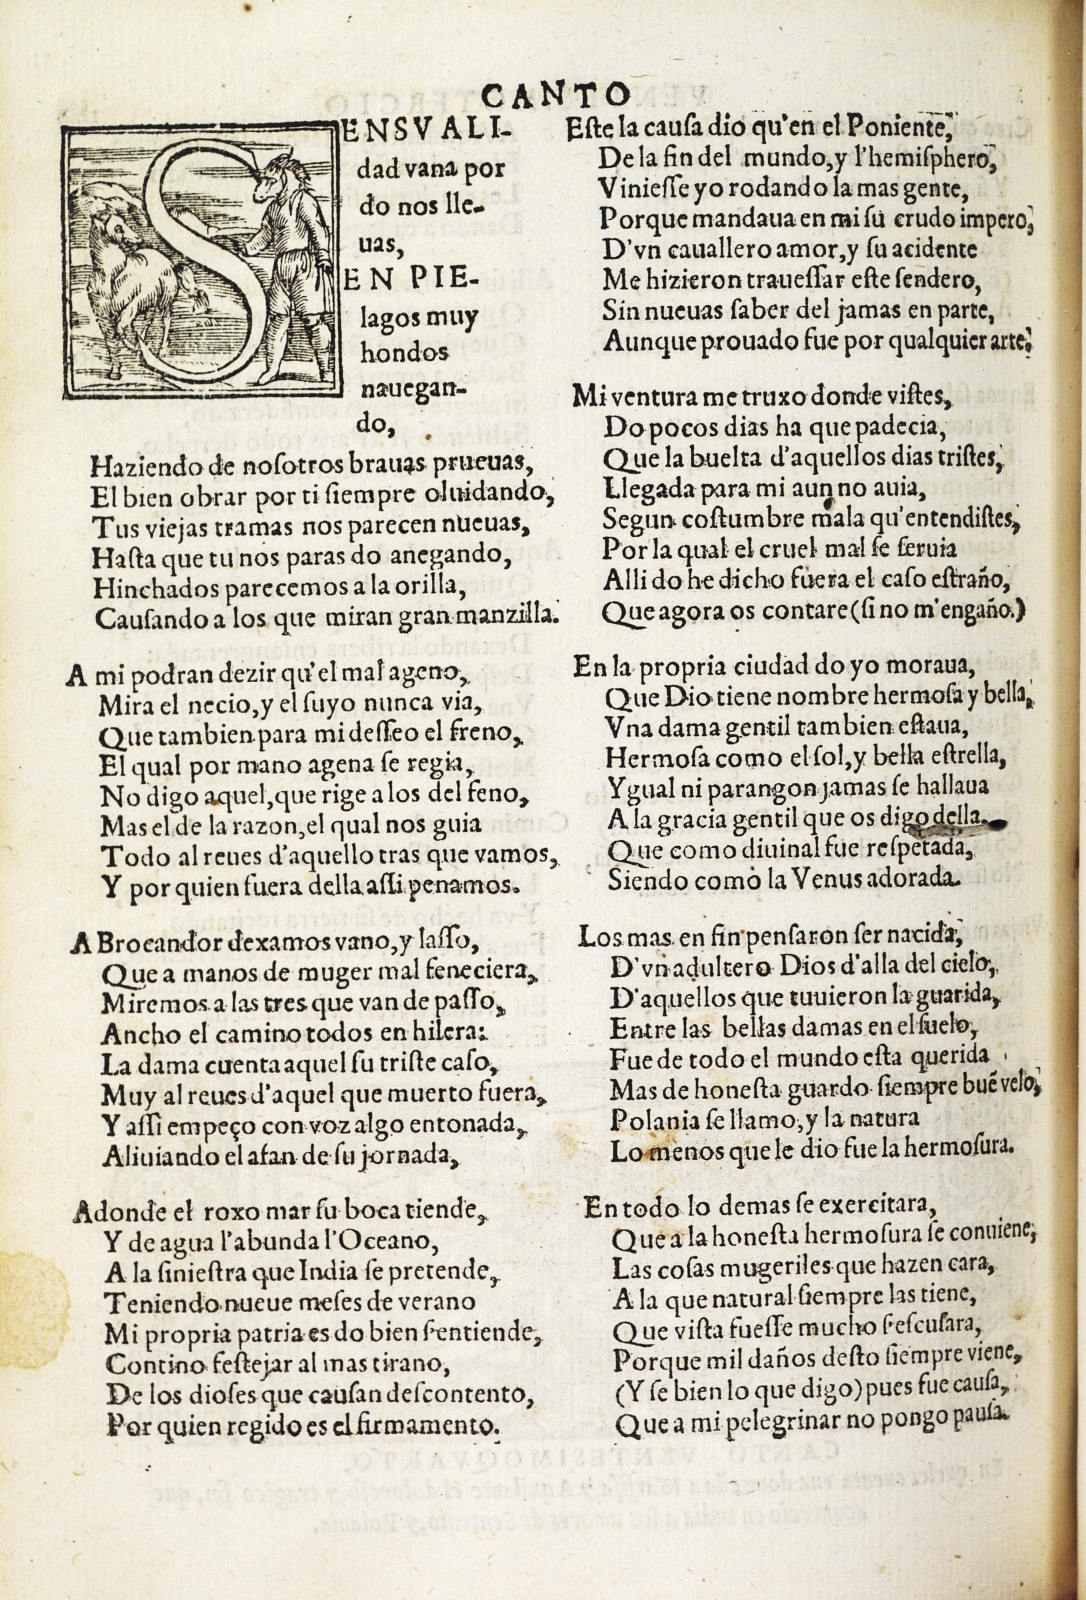 CANTO
SENSVALI-
dad vana por
do nos lle-
uas,
EN PIE-
lagos muy
hondos
nauegan-
do,
Haziendo de nosotros brauas prueuas,
El bien obrar por ti siempre oluidando,
Tus viejas tramas nos parecen nueuas,
Hasta que tu nos paras do anegando,
Hinchados parecemos a la orilla,
Causando a los que miran gran manzilla.
A mi podran dezir qu'el mal ageno,
Mira el necio, y el suyo nunca via,
Que tambien para mi desseo el freno,
El qual por mano agena se regia,
No digo aquel, que rige a los del feno,
Mas el de la razon, el qual nos guia
Todo al reues d'aquello tras que vamos,
Y por quien fuera della assi penamos.
A Brocandor dexamos vano, y lasso,
Que a manos de muger mal feneciera,
Miremos a las tres que van de passo,
Ancho el camino todos en hilera:
La dama cuenta aquel su triste caso,
Muy al reues d'aquel que muerto fuera,
Y assi empeço con voz algo entonada,
Aliuiando el afan de su jornada,
Adonde el roxo mar su boca tiende,
Y de agua l'abunda l'Oceano,
A la siniestra que India se pretende,
Teniendo nueue meses de verano
Mi propria patria es do bien s'entiende,
Contino festejar al mas tirano,
De los dioses que causan descontento,
Por quien regido es el firmamento.
Este la causa dio qu'en el Poniente,
De la fin del mundo, y l'hemisphero,
Viniesse yo rodando la mas gente,
Porque mandaua en mi su crudo impero,
D'vn cauallero amor, y su acidente
Me hizieron trauessar este sendero,
Sin nueuas saber del jamas en parte,
Aunque prouado fue por qualquier arte,
Mi ventura me truxo donde vistes,
Do pocos dias ha que padecia,
Que la buelta d'aquellos dias tristes,
Llegada para mi aun no auia,
Segun costumbre mala qu'entendistes,
Por la qual el cruel mal se seruia
Alli do he dicho fuera el caso estraño,
Que agora os contare (si no m'engaño.)
En la propria ciudad do yo moraua,
Que Dio tiene nombre hermosa y bella,
Vna dama gentil tambien estaua,
Hermosa como el sol, y bella estrella,
Ygual ni parangon jamas se hallaua
A la gracia gentil que os digo della.
Que como diuinal fue respetada,
Siendo como la Venus adorada.
Los mas en fin pensaron ser nacida,
D'vn adultero Dios d'alla del cielo,
D'aquellos que tuuieron la guarida,
Entre las bellas damas en el suelo,
Fue de todo el mundo esta querida
Mas de honesta guardo siempre buē velo,
Polania se llamo, y la natura
Lo menos que le dio fue la hermosura.
En todo lo demas se exercitara,
Que a la honesta hermosura se conuiene,
Las cosas mugeriles que hazen cara,
A la que natural siempre las tiene,
Que vista fuesse mucho s'escusara,
Porque mil daños desto siempre viene,
(Y se bien lo que digo) pues fue causa,
Que a mi pelegrinar no pongo pausa.